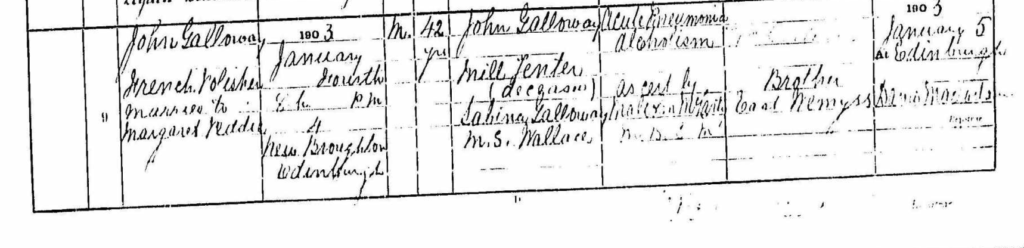 9
John Galloway
French Polisher
Married to
Margaret Peddie
1903
January
Fourth
8 h P M
4
New Broughton
Edinburgh
M.
42
yrs
John Galloway
Mill Tenter
(deceased)
Sabina Galloway
M.S. Wallace
Acute Pneumonia
Alcoholism
as cert by
Brother
East Wemyss
1903
January 5
At Edinburgh
Registrar